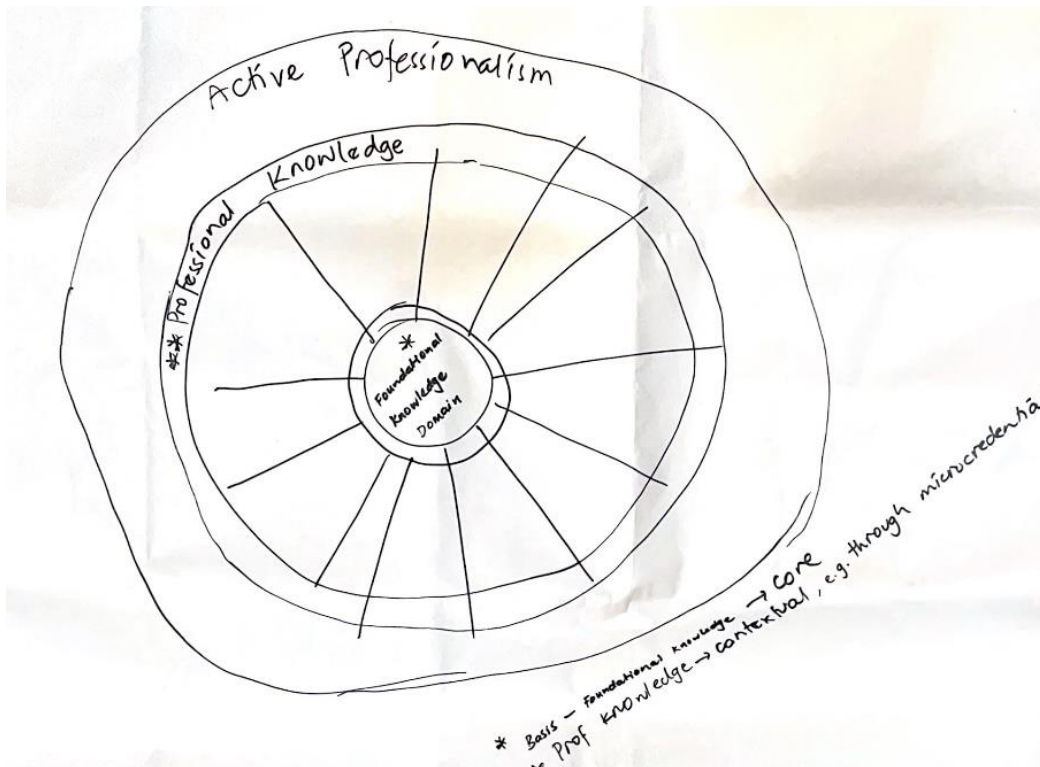 Active Professionalism
** Professional Knowledge
*
Foundational
Knowledge
Domain
* Basis – Foundational Knowledge → core
Prof Knowledge → contextual, e.g. through microcredentia